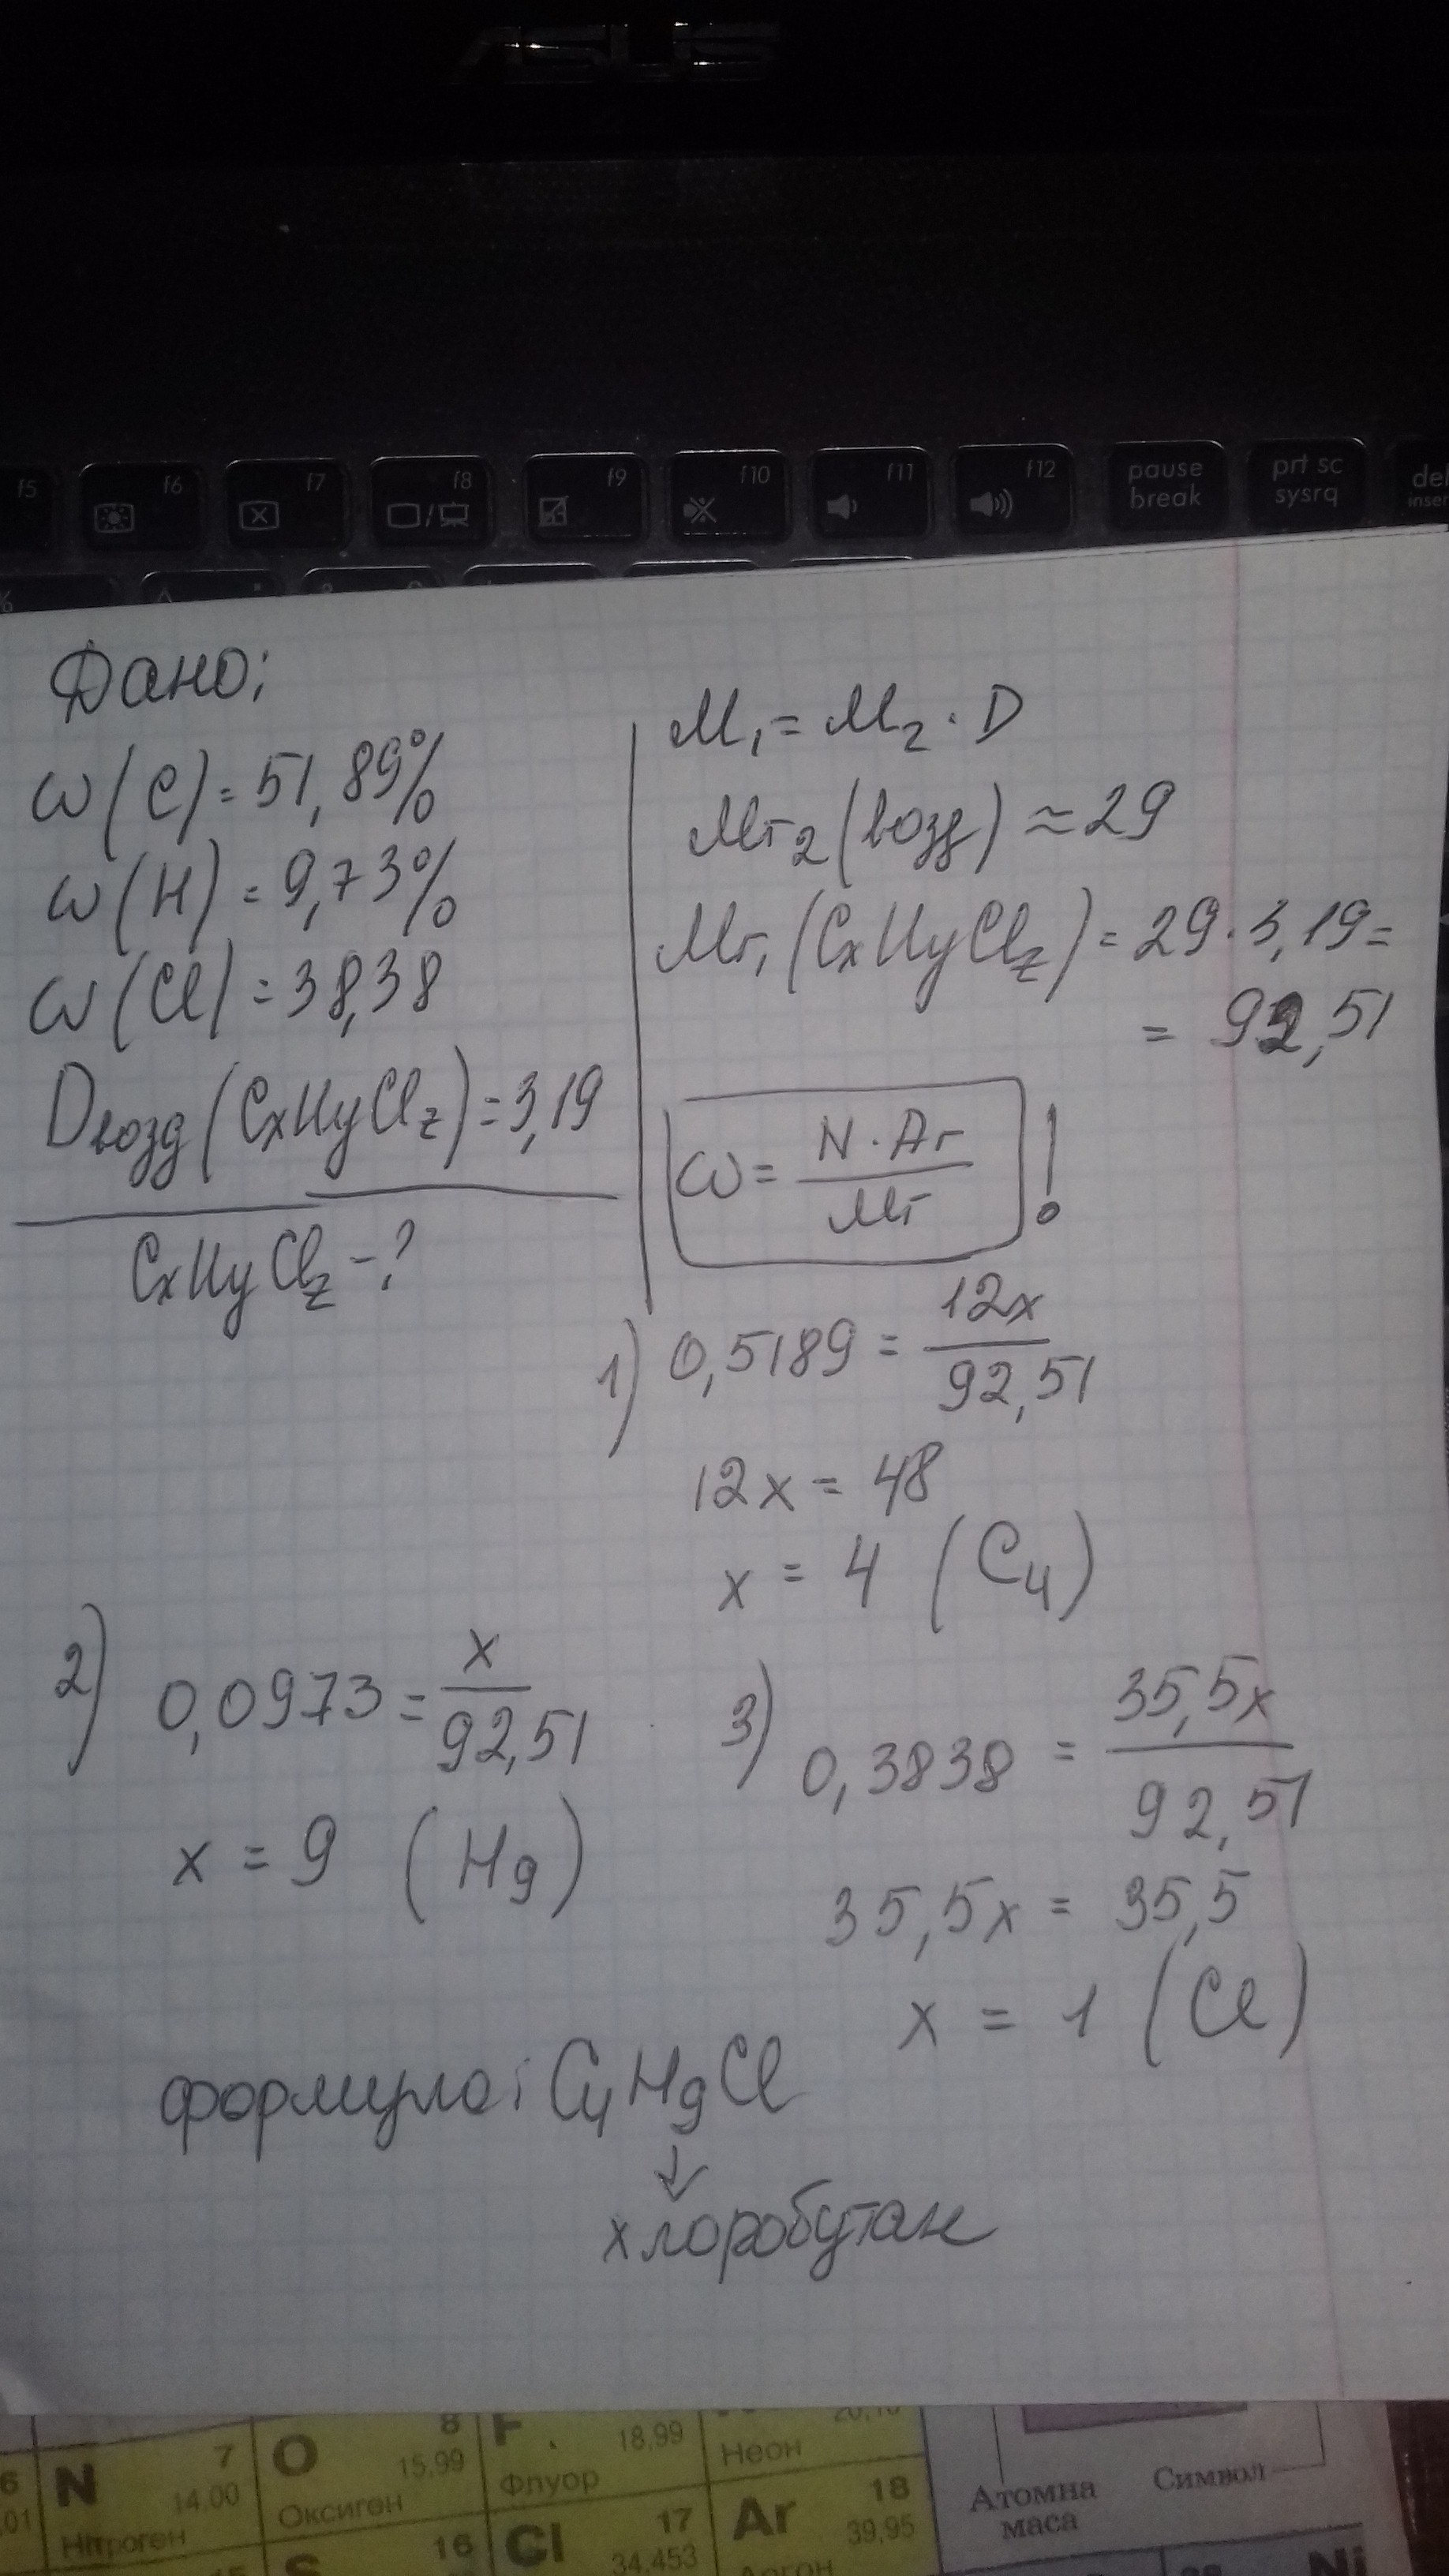 ASUS
f5 f6 f7 f8 f9 f10 f11 f12 pause break prt sc sysrq del inser
Дано:
ω(C) = 51,89%
ω(H) = 9,73%
ω(Cl) = 38,38
Dвозд(CxHyClz) = 3,19
CxHyClz - ?
M₁ = M₂ · D
Mr₂(возд) ≈ 29
Mr₁(CxHyClz) = 29 · 3,19 =
= 92,51
ω = N · Ar / Mr !
1) 0,5189 = 12x / 92,51
12x = 48
x = 4 (C₄)
2) 0,0973 = x / 92,51
x = 9 (H₉)
3) 0,3838 = 35,5x / 92,51
35,5x = 35,5
x = 1 (Cl)
формула: C₄H₉Cl
↓
хлоробутан
6 N 7 O 8 F
01 14.00 15,99 18,99
Нітроген Оксиген Флуор Неон
S 16 Cl 17 Ar 18
34.453 39,95
Атомна маса Символ
Ni